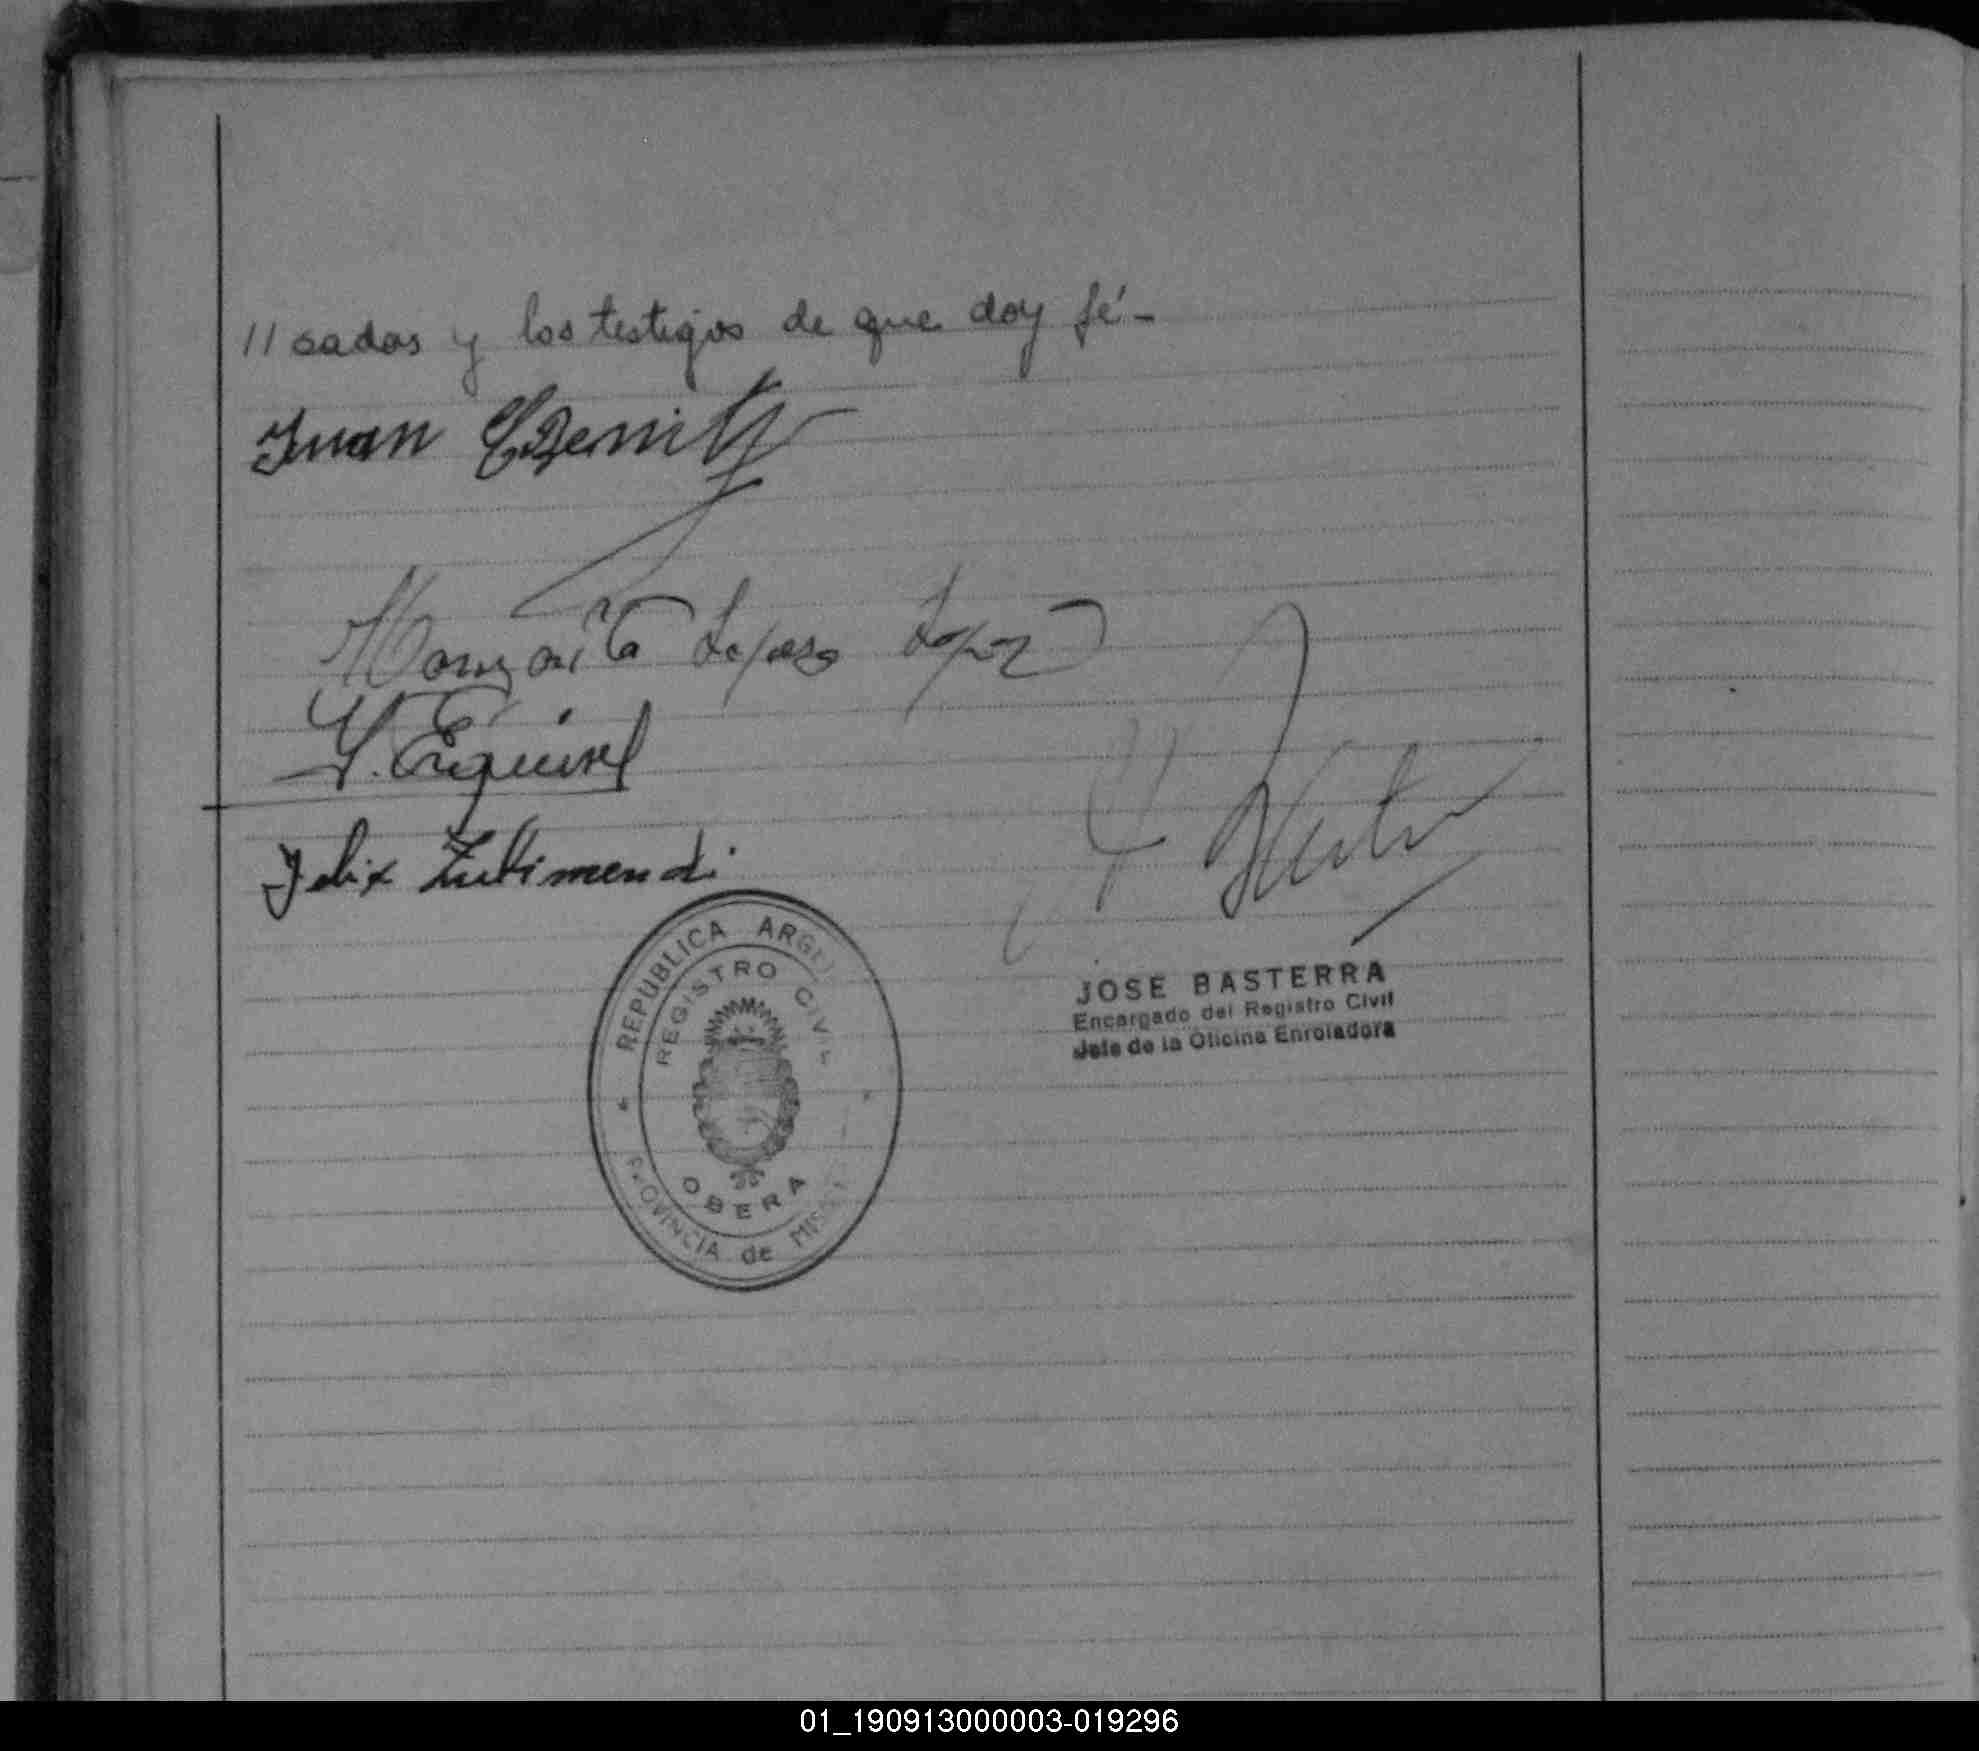 // sados y los testigos de que doy fé -
Juan C Benitz
Margarita Lopez
S. Esquivel
Felix Zubimendi
REPUBLICA
REGISTRO CIVIL
OBERA
PROVINCIA de
JOSE BASTERRA
Encargado del Registro Civil
Jefe de la Oficina Enroladora
01_190913000003-019296